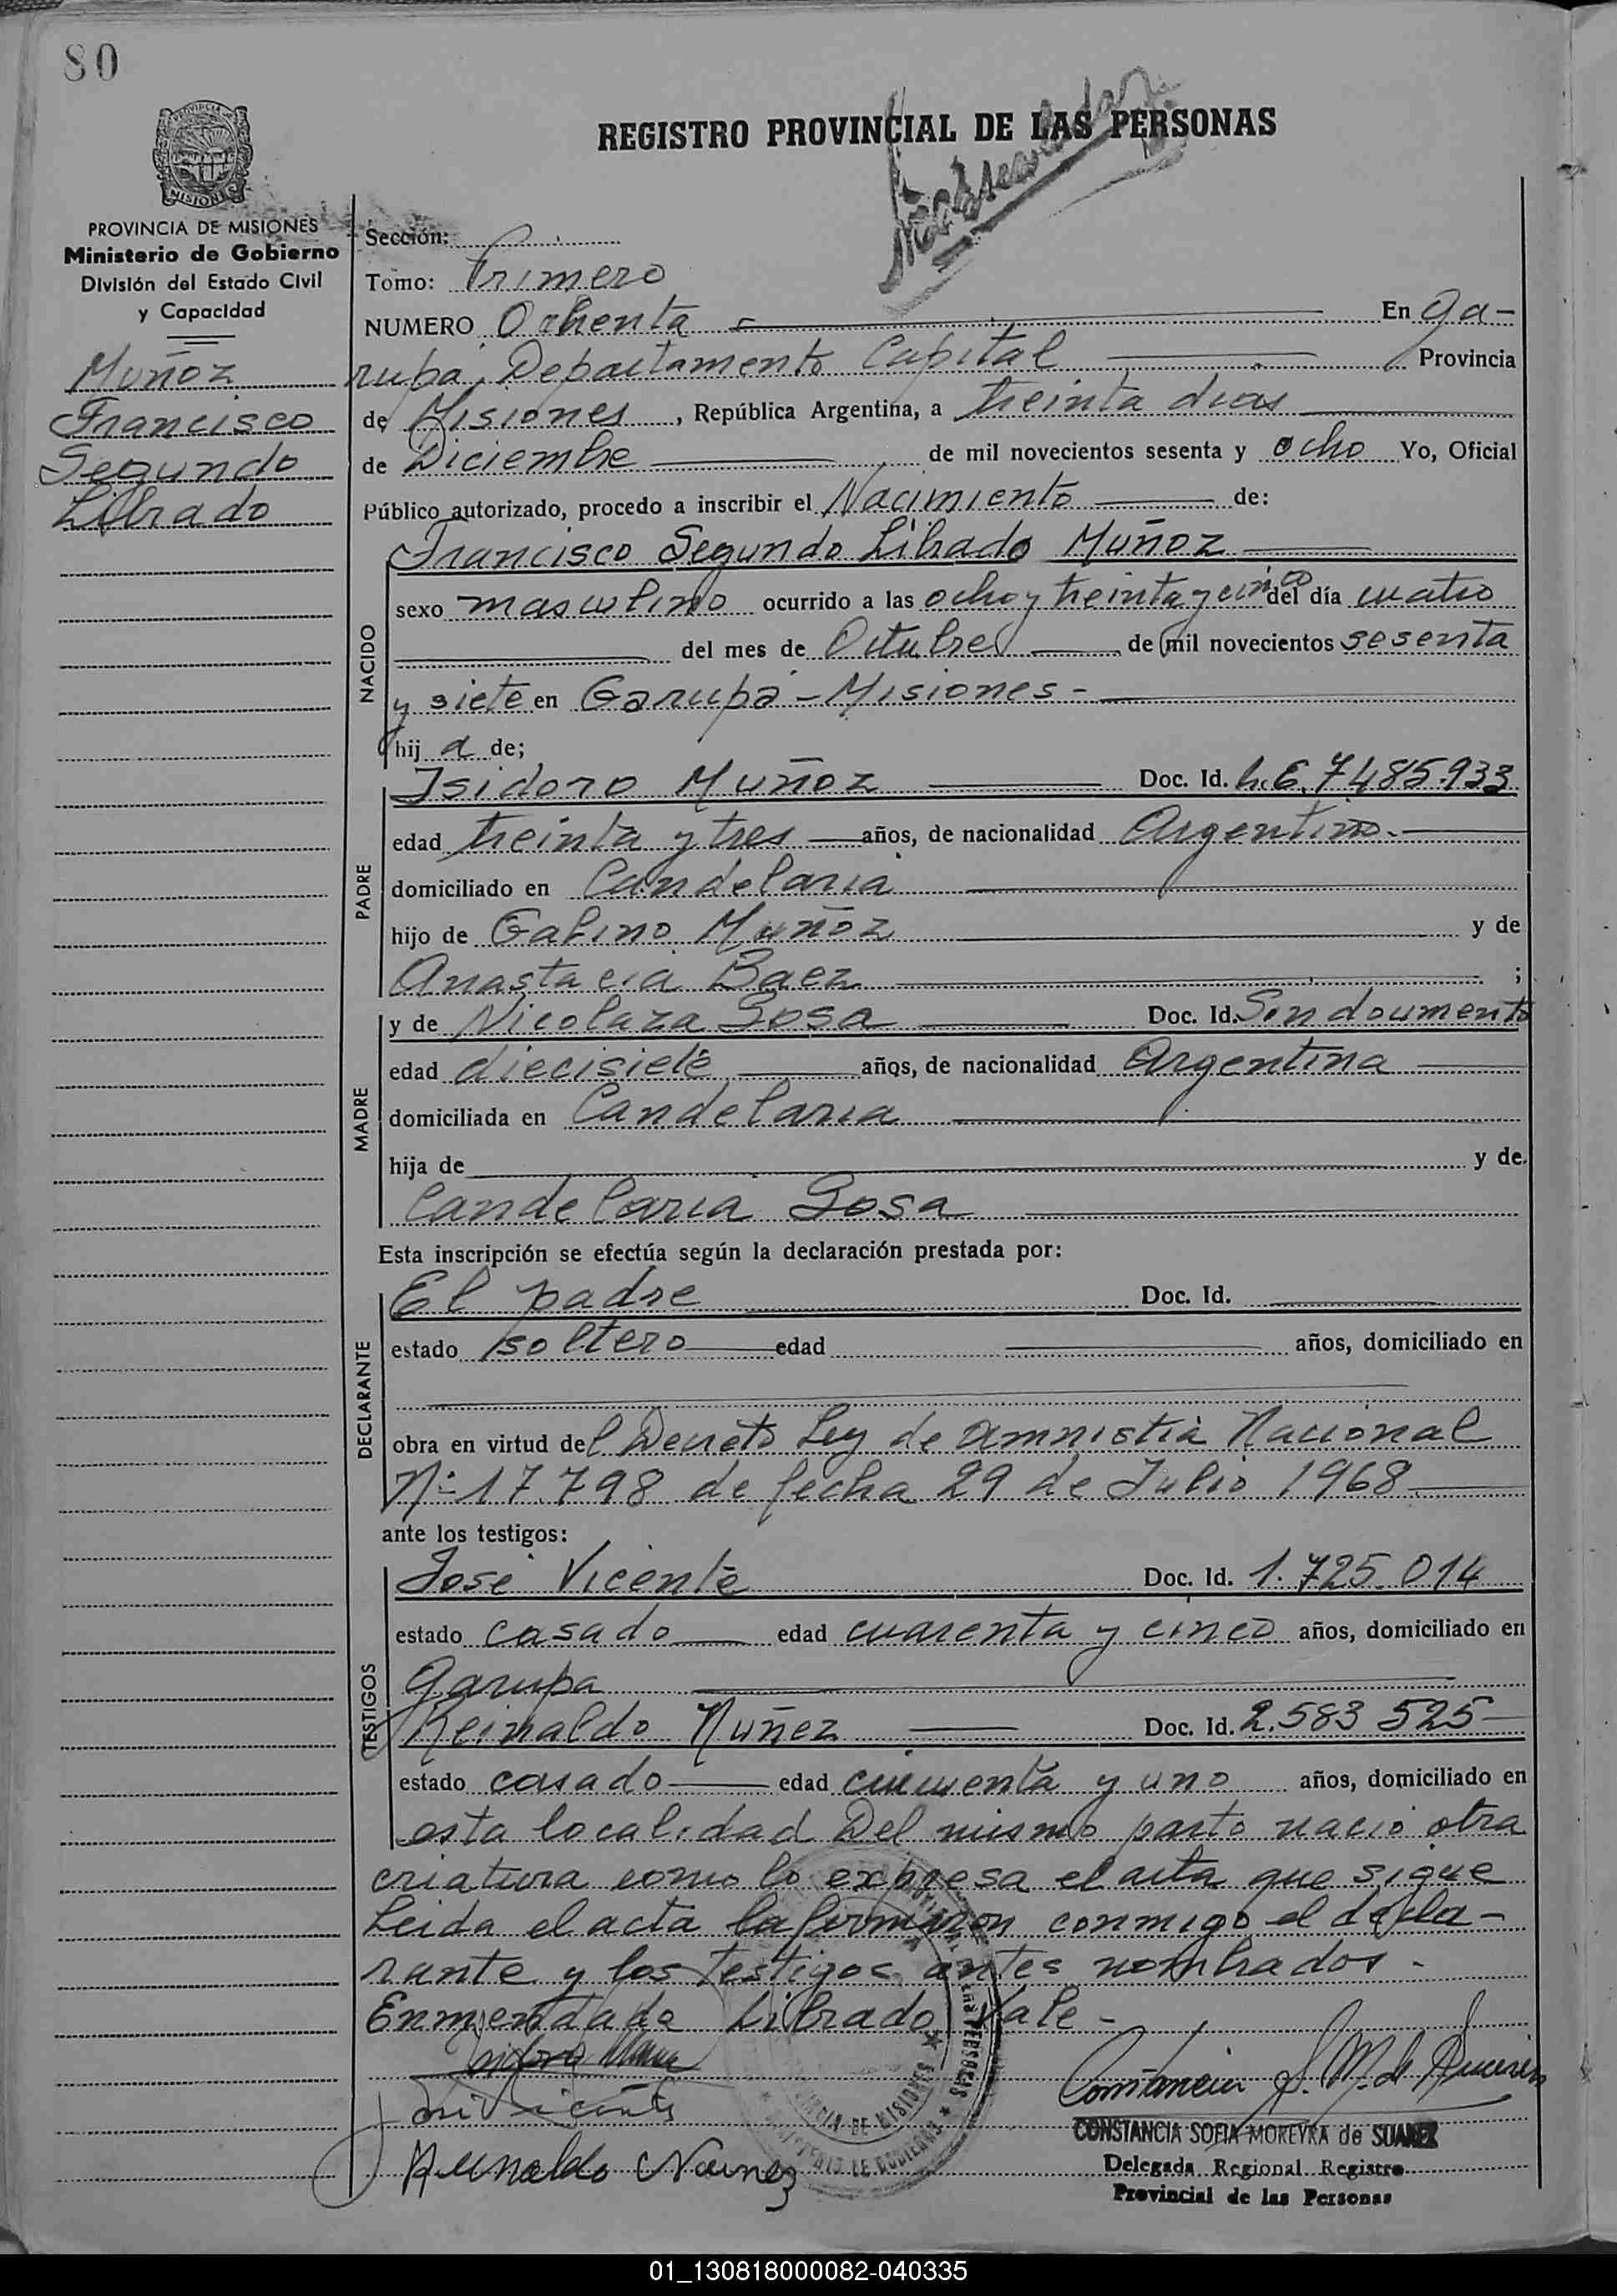 80
REGISTRO PROVINCIAL DE LAS PERSONAS
PROVINCIA DE MISIONES
Ministerio de Gobierno
División del Estado Civil
y Capacidad
Muñoz
Francisco
Segundo
Librado
Sección:
Tomo: Primero
NUMERO Ochenta En Ga-
rupa, Departamento Capital Provincia
de Misiones, República Argentina, a treinta dias
de Diciembre de mil novecientos sesenta y ocho Yo, Oficial
Público autorizado, procedo a inscribir el Nacimiento de:
Francisco Segundo Librado Muñoz
NACIDO
sexo masculino ocurrido a las ocho y treinta y cinco del día cuatro
del mes de Octubre de mil novecientos sesenta
y siete en Garupá - Misiones -
hij a de;
PADRE
Isidoro Muñoz Doc. Id. L.E. 7485.933
edad treinta y tres años, de nacionalidad Argentino.
domiciliado en Candelaria
hijo de Gabino Muñoz y de
Anastacia Baez ;
MADRE
y de Nicolaza Sosa Doc. Id. Sin documento
edad diecisiete años, de nacionalidad Argentina
domiciliada en Candelaria
hija de y de
Candelaria Sosa
Esta inscripción se efectúa según la declaración prestada por:
DECLARANTE
El padre Doc. Id.
estado soltero edad años, domiciliado en
obra en virtud del Decreto Ley de Amnistia Nacional
Nº 17.798 de fecha 29 de Julio 1968
ante los testigos:
TESTIGOS
José Vicente Doc. Id. 1.725.014
estado casado edad cuarenta y cinco años, domiciliado en
Garupa
Reinaldo Nuñez Doc. Id. 2.583 525
estado casado edad cincuenta y uno años, domiciliado en
esta localidad Del mismo parto nació otra
criatura como lo expresa el acta que sigue
Leida el acta la firmaron conmigo el decla-
rante y los testigos antes nombrados.
Enmendada Librado Vale -
José Vicente
Reinaldo Nunez
CONSTANCIA SOFIA MOREYRA de SUAREZ
Delegada Regional Registro
Provincial de las Personas
01_130818000082-040335